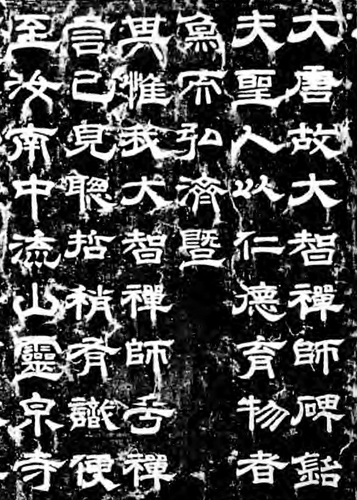 大唐故大智禪師碑銘
夫聖人以仁德育物者
為而弘濟暨
其惟我大智禪師乎禪
言已見聰哲稍有識便
至汝南中流山靈泉寺